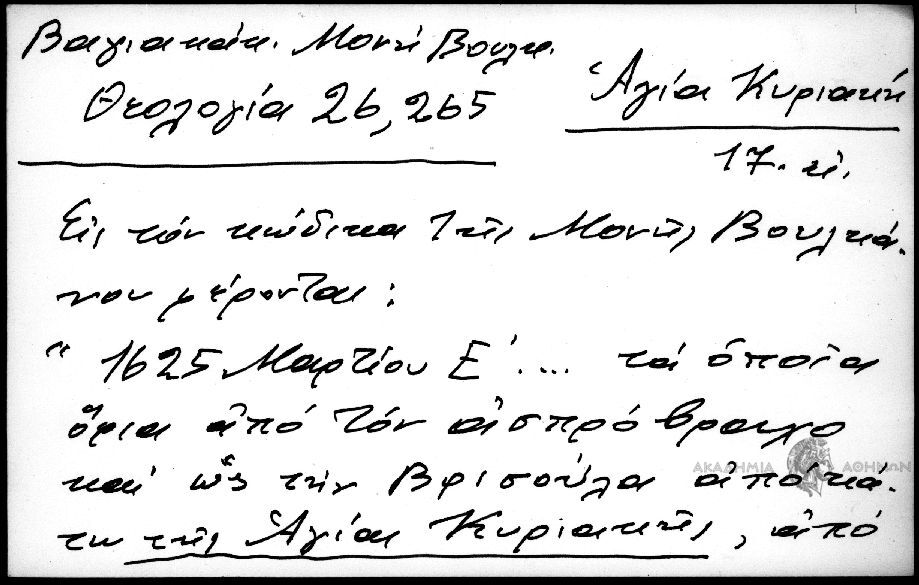 Βαγιακάκ. Μονή Βουλκ.
Θεολογία 26, 265
Ἁγία Κυριακή
17. αἰ.
Εἰς τόν κώδικα τῆς Μονῆς Βουλκά-
νου φέρονται:
“ 1625 Μαρτίου Ε΄.... τά ὁποῖα
ὅρια ἀπό τόν ἀσπρόβραχο
καί ὥς τήν Βρισούλα ἀπό κά-
τω τῆς Ἁγίας Κυριακῆς, ἀπό
ΑΚΑΔΗΜΙΑ ΑΘΗΝΩΝ